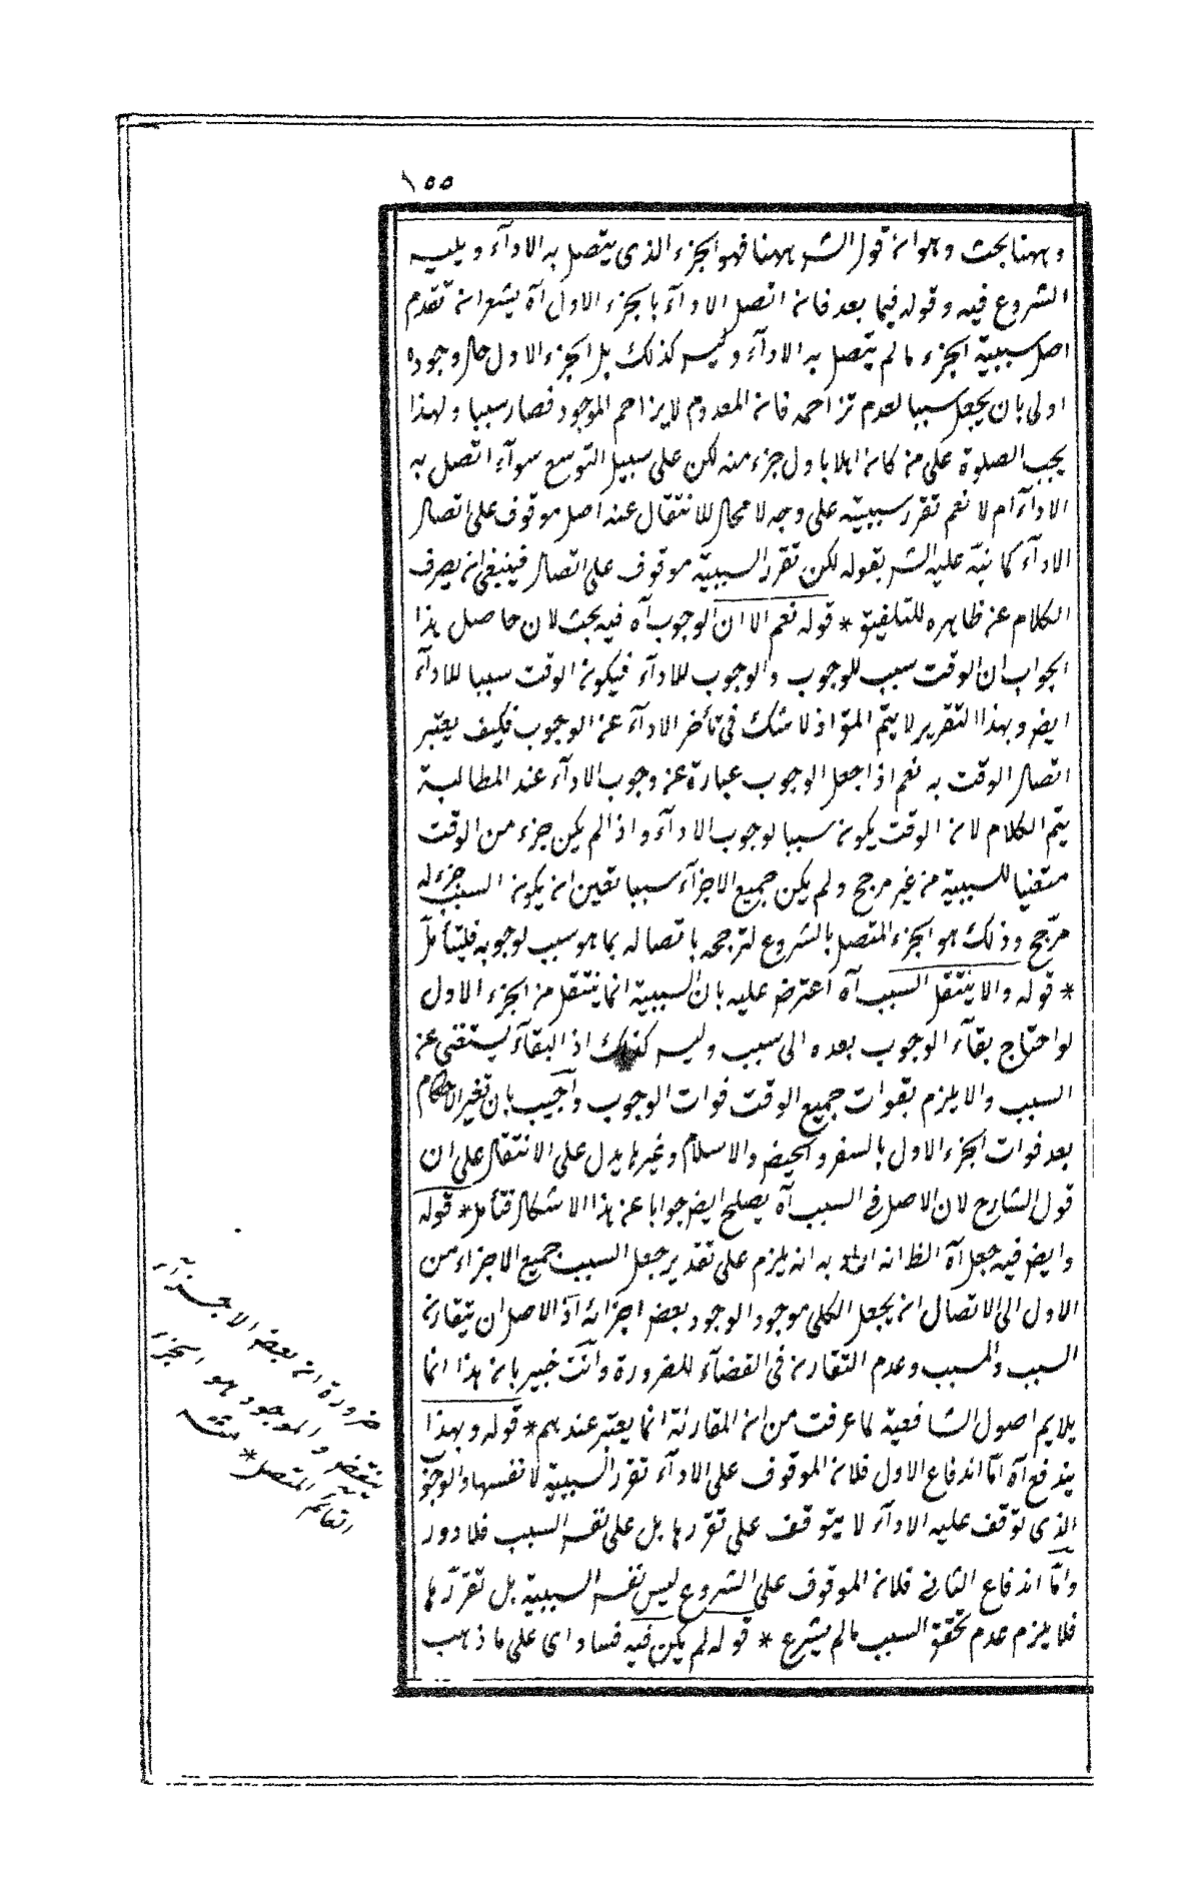 ١٥٥
وههنا بحث وهو ان قول الشر ههنا فهو الجزء الذى يتصل به الادآء ويليه
الشروع فيه وقوله فيما بعد فان اتصل الادآء بالجزء الاول آه يشعر ان تقدم
اصل سببية الجزء مالم يتصل به الادآء وليس كذلك بل الجزء الاول حال وجوده
اولى بان يجعل سببا لعدم تزاحمه فان المعدوم لا يزاحم الموجود فصار سببا ولهذا
يجب الصلوة على من كان اهلا باول جزء منه لكن على سبيل التوسع سوآء اتصل به
الادآء ام لا نعم تقرر سببيته على وجه لا محال للانتقال عنه اصل موقوف على اتصال
الادآء كما نبّه عليه الشر بقوله لكن تقرر السببية موقوف على اتصال فينبغى ان يصرف
الكلام عن ظاهره للتلفيق * قوله نعم الا ان الوجوب آه فيه بحث لان حاصل هذا
الجواب ان الوقت سبب للوجوب والوجوب للادآء فيكون الوقت سببا للادآء
ايض وبهذا التقرير لا يتمّ المؤ اذ لا شك فى تأخر الادآء عن الوجوب فكيف يعتبر
اتصال الوقت به نعم اذا جعل الوجوب عبارة عن وجوب الادآء عند المطالبة
يتم الكلام لان الوقت يكون سببا لوجوب الادآء واذا لم يكن جزء من الوقت
متعينا للسببية من غير مرجح ولم يكن جميع الاجزآء سببا تعين ان يكون السبب جزء له
مرّجح وذلك هو الجزء المتصل بالشروع لترجحه باتصاله بما هو سبب لوجوبه فليتأمل
* قوله والا ينتقل السبب آه اعترض عليه بان السببية انما ينتقل من الجزء الاول
لو احتاج بقآء الوجوب بعده الى سبب وليس كذلك اذ البقآء يستغنى عن
السبب والا يلزم بفوات جميع الوقت فوات الوجوب واجيب بان تغير الاحكام
بعد فوات الجزء الاول بالسفر والحيض والاسلام وغيرها يدل على الانتقال على ان
قول الشارح لان الاصل فى السبب آه يصلح ايض جوابا عن هذا الاشكال فتأمل * قوله
وايض فيه جعل آه الظ انه اراد به انه يلزم على تقدير جعل السبب جميع الاجزاء من
الاول الى الاتصال ان يجعل الكلى موجود الوجود بعض اجزائه اذ الاصل ان يتقارن
السبب والمسبب وعدم التقارن فى القضآء للضرورة وانت خبير بان هذا انما
يلايم اصول الشافعية لما عرفت من ان المقارنة انما يعتبر عندهم * قوله وبهذا
يندفع آه امّا اندفاع الاول فلان الموقوف على الادآء تقرر السببية لا نفسها والوجوب
الذى توقف عليه الادآء لا يتوقف على تقررها بل على نفس السبب فلا دور
وامّا اندفاع الثانى فلان الموقوف على الشروع ليس نفس السببية بل تقررها
فلا يلزم عدم تحقق السبب مالم يشرع * قوله لم يكن فيه فساد اى على ما ذهب
ضرورة ان بعض الاجزآء
ينقض والموجود هو الجزء
القآئم المتصل * منه